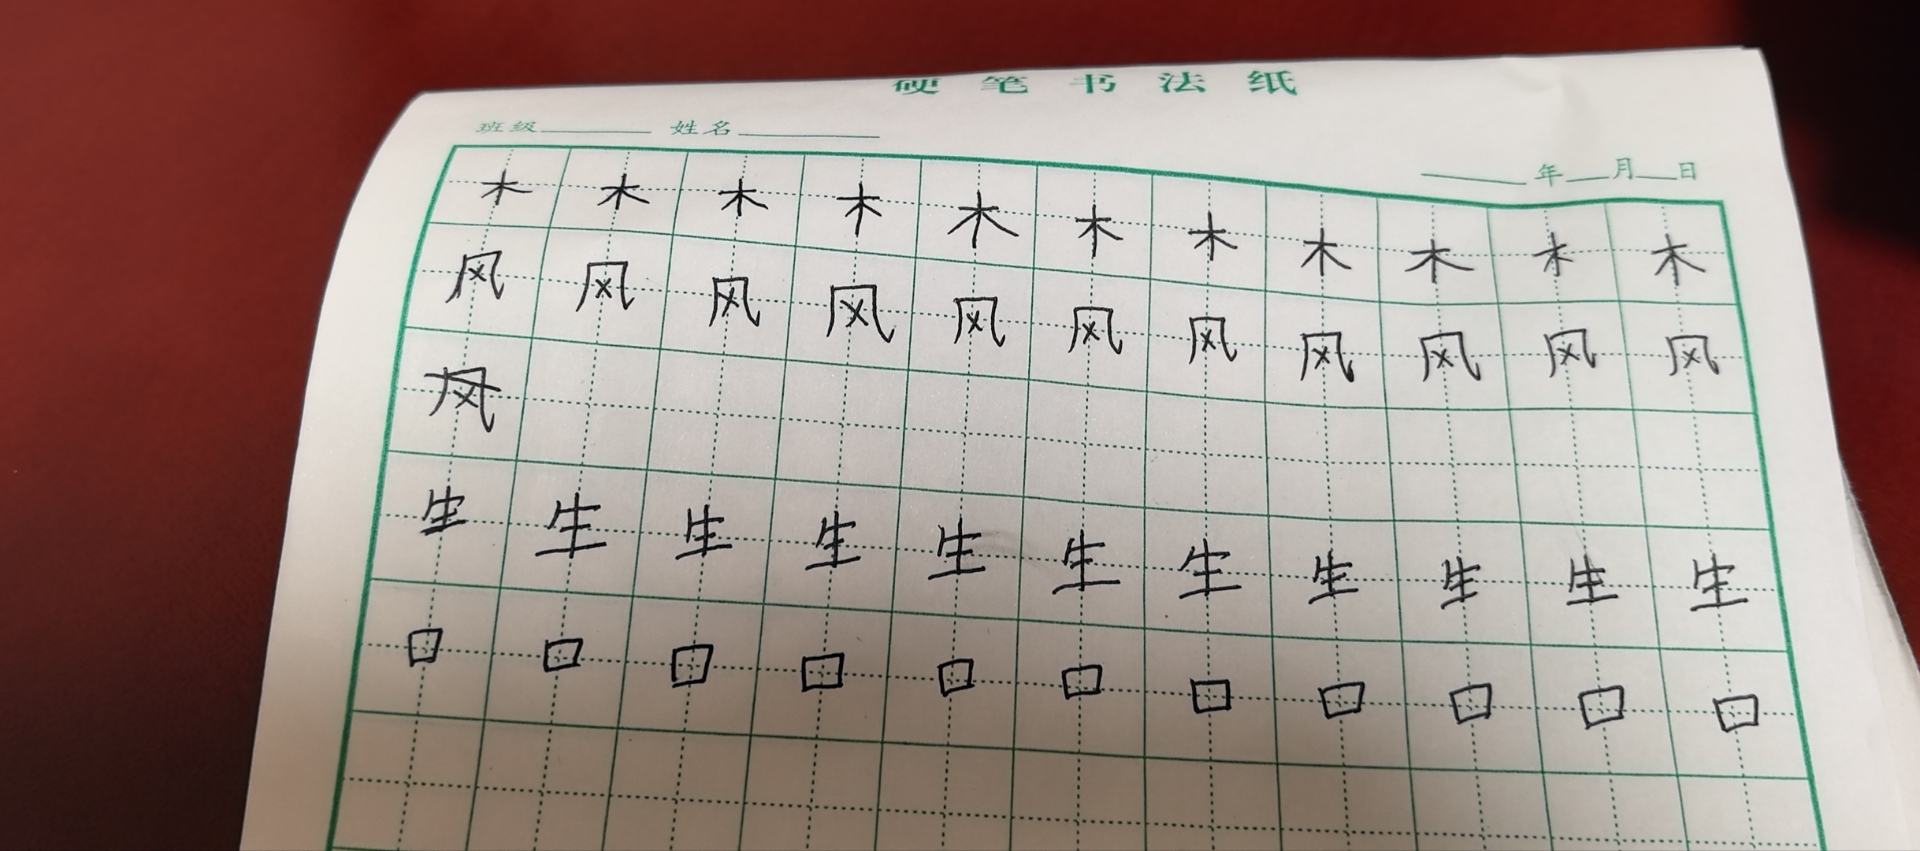 硬笔书法纸
班级 姓名
年 月 日
木 木 木 木 木 木 木 木 木 木 木
风 风 风 风 风 风 风 风 风 风 风
风
生 生 生 生 生 生 生 生 生 生 生
口 口 口 口 口 口 口 口 口 口 口